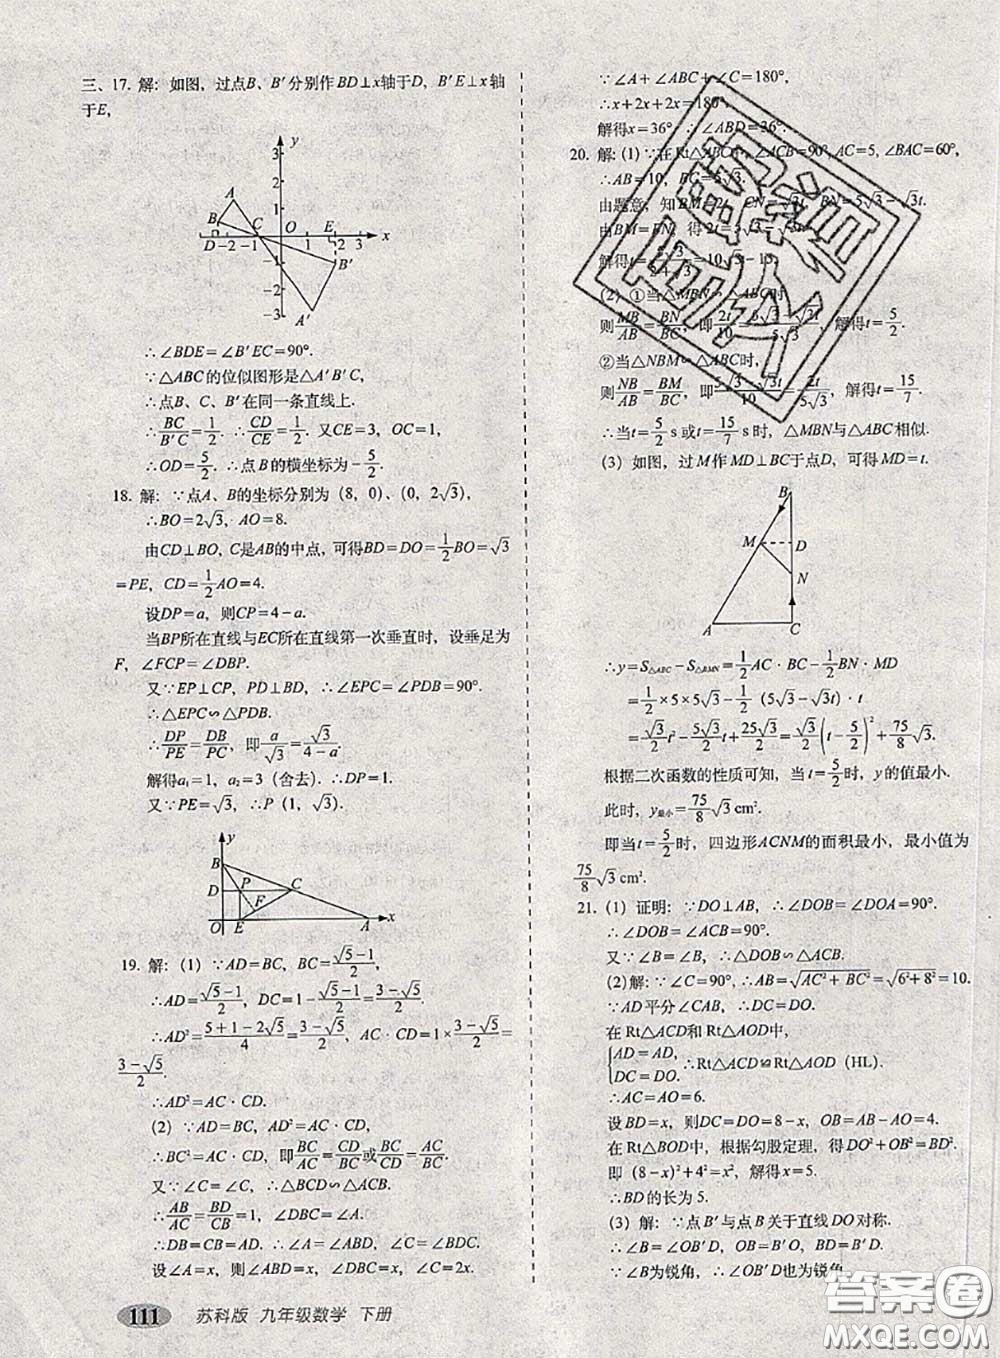 三、17. 解：如图，过点B、B′分别作BD⊥x轴于D，B′E⊥x轴
于E，
y
3
2
1
A
B
C
O
E
D
-2 -1
1 2 3
x
-1
B′
-3
A′
∴∠BDE=∠B′EC=90°.
∵△ABC的位似图形是△A′B′C，
∴点B、C、B′在同一条直线上.
∴BC/B′C=1/2. ∴CD/CE=1/2. 又CE=3，OC=1，
∴OD=5/2. ∴点B的横坐标为-5/2.
18. 解：∵点A、B的坐标分别为（8，0）、（0，2√3），
∴BO=2√3，AO=8.
由CD⊥BO，C是AB的中点，可得BD=DO=1/2BO=√3
=PE，CD=1/2AO=4.
设DP=a，则CP=4-a.
当BP所在直线与EC所在直线第一次垂直时，设垂足为
F，∠FCP=∠DBP.
又∵EP⊥CP，PD⊥BD，∴∠EPC=∠PDB=90°.
∴△EPC∽△PDB.
∴DP/PE=DB/PC，即a/√3=√3/(4-a).
解得a₁=1，a₂=3（舍去）∴DP=1.
又∵PE=√3，∴P（1，√3）.
y
B
D P C
F
O E A x
19. 解：（1）∵AD=BC，BC=(√5-1)/2，
∴AD=(√5-1)/2，DC=1-(√5-1)/2=(3-√5)/2.
∴AD²=(5+1-2√5)/4=(3-√5)/2，AC·CD=1×(3-√5)/2=
(3-√5)/2.
∴AD²=AC·CD.
（2）∵AD=BC，AD²=AC·CD，
∴BC²=AC·CD，即BC/AC=CD/BC或BC/CD=AC/BC.
又∵∠C=∠C，∴△BCD∽△ACB.
∴AB/AC=BD/CB=1，∠DBC=∠A.
∴DB=CB=AD. ∴∠A=∠ABD，∠C=∠BDC.
设∠A=x，则∠ABD=x，∠DBC=x，∠C=2x.
∵∠A+∠ABC+∠C=180°，
∴x+2x+2x=180°.
解得x=36°. ∴∠ABD=36°.
20. 解：（1）∵在Rt△ABC中，∠ACB=90°，AC=5，∠BAC=60°，
∴AB=10，BC=5√3.
由题意，知BM=2t，CN=√3t，BN=5√3-√3t.
由BM=BN，得2t=5√3-√3t.
解得t=5√3/(2+√3)=10√3-15.
（2）①当△MBN∽△ABC时，
则MB/AB=BN/BC，即2t/10=(5√3-√3t)/5√3，解得t=5/2.
②当△NBM∽△ABC时，
则NB/AB=BM/BC，即(5√3-√3t)/10=2t/5√3，解得t=15/7.
∴当t=5/2 s或t=15/7 s时，△MBN与△ABC相似.
（3）如图，过M作MD⊥BC于点D，可得MD=t.
B
M D
N
A C
∴y=S△ABC-S△BMN=1/2AC·BC-1/2BN·MD
=1/2×5×5√3-1/2（5√3-√3t）·t
=√3/2t²-5√3/2t+25√3/2=√3/2(t-5/2)²+75/8√3.
根据二次函数的性质可知，当t=5/2时，y的值最小.
此时，y最小=75/8√3 cm².
即当t=5/2时，四边形ACNM的面积最小，最小值为
75/8√3 cm².
21. （1）证明：∵DO⊥AB，∴∠DOB=∠DOA=90°.
∴∠DOB=∠ACB=90°.
又∵∠B=∠B，∴△DOB∽△ACB.
（2）解：∵∠C=90°，∴AB=√(AC²+BC²)=√(6²+8²)=10.
∵AD平分∠CAB，∴DC=DO.
在Rt△ACD和Rt△AOD中，
{AD=AD，
DC=DO. ∴Rt△ACD≌Rt△AOD（HL）.
∴AC=AO=6.
设BD=x，则DC=DO=8-x，OB=AB-AO=4.
在Rt△BOD中，根据勾股定理，得DO²+OB²=BD².
即（8-x)²+4²=x²，解得x=5.
∴BD的长为5.
（3）解：∵点B′与点B关于直线DO对称.
∴∠B=∠OB′D，BO=B′O，BD=B′D.
∵∠B为锐角，∴∠OB′D也为锐角，
111 苏科版 九年级数学 下册
答案圈
MXQE.COM